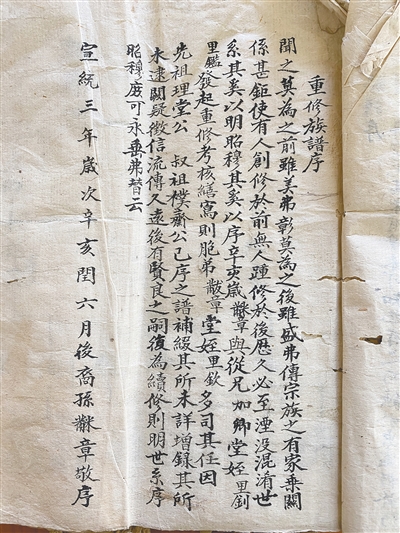 重修族譜序
聞之莫為之前雖美弗彰莫為之後雖盛弗傳宗族之有家乗關
係甚鉅使有人創修於前無人踵修於後歷久必至湮没混淆世
系其奚以明昭穆其奚以序辛亥歲黼章與從兄加卿堂姪里劉
里鑑發起重修考核繕寫則胞弟黻章堂姪里欽多司其任因
先祖理堂公 叔祖樸齋公已序之譜補綴其所未詳增録其所
未逮闕疑徵信流傳久遠後有賢良之嗣復為續修則明世系序
昭穆庶可永垂弗替云
宣統三年歲次辛亥閏六月後裔孫黼章敬序